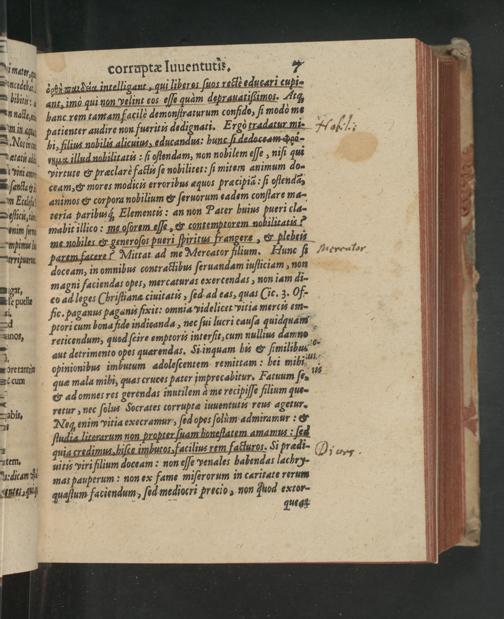 corruptæ Iuuentutis. 7
intelligant, qui liberos suos rectè educari cupi-
ant, imò qui non velint eos esse quàm deprauatissimos. Atq,
hanc rem tamam facilè demonstraturum confido, si modò me
patienter audire non fueritis dedignati. Ergò tradatur mi-
hi, filius nobilis alicuius, educandus: hunc si dedoceam
illud nobilitatis: si ostendam, non nobilem esse, nisi qui
virtute & præclarè factis se nobilitet: si mitem animum do-
ceam, & mores modicis erroribus æquos præcipiā: si ostendā,
animos & corpora nobilium & seruorum eadem constare ma-
teria paribusq; Elementis: an non Pater huius pueri cla-
mabit illico: me osorem esse, & contemptorem nobilitatis?
me nobiles & generosos pueri spiritus frangere, & plebeis
parem facere? Mittat ad me Mercator filium. Hunc si
doceam, in omnibus contractibus seruandam iusticiam, non
magni faciendas opes, mercaturas exercendas, non iam di-
co ad leges Christianæ ciuitatis, sed ad eas, quas Cic. 3. Of-
fic. paganus paganis fixit: omnia videlicet vitia mercis em-
ptori cum bona fide indicanda, nec sui lucri causa quidquam
reticendum, quod scire emptoris intersit, cum nullius damno
aut detrimento opes quærendas. Si inquam his & similibus
opinionibus imbutum adolescentem remittam: hei mihi
quæ mala mihi, quas cruces pater imprecabitur. Fatuum se,
& ad omnes res gerendas inutilem à me recipisse filium que-
retur, nec solus Socrates corruptæ iuuentutis reus agetur.
Neq, enim vitia execramur, sed opes solùm admiramur: &
studia literarum non propter suam honestatem amamus: sed
quia credimus, hisce imbutos, facilius rem facturos. Si prædi-
uitis viri filium doceam: non esse venales habendas lachry-
mas pauperum: non ex fame miserorum in caritate rerum
quæstum faciendum, sed mediocri precio, non quod extor-
queat
Nobilis
Mercator
Diues.